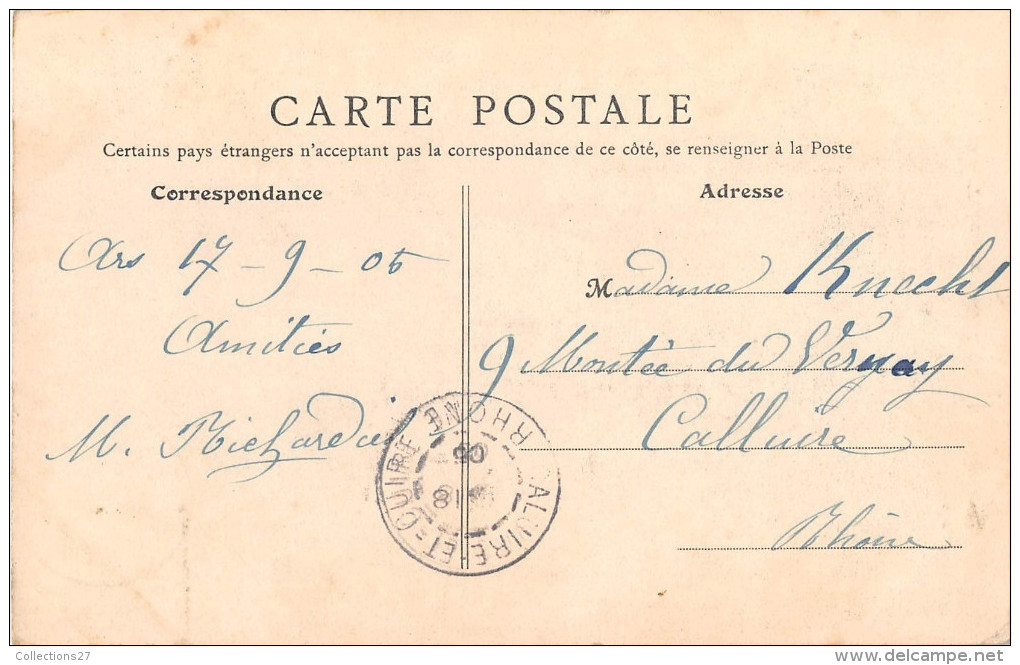 CARTE POSTALE
Certains pays étrangers n'acceptent pas la correspondance de ce côté, se renseigner à la Poste
Correspondance
Ars 17-9-05
Amitiés
M.
Adresse
Madame Knecht
9 Montée du Vernay
Calluire
Rhône
CALUIRE-ET-CUIRE RHONE
18
05
Collections27
www.delcampe.net